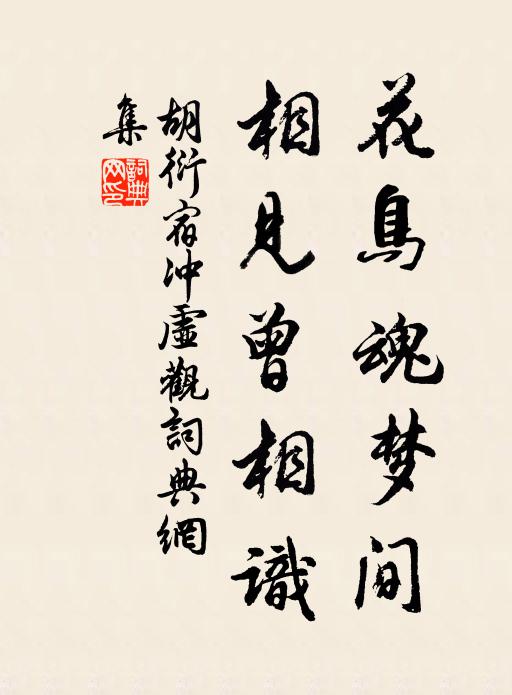 花鳥魂梦间
相見曾相識
胡衍宿冲虛觀詞典網
集
詞典網印